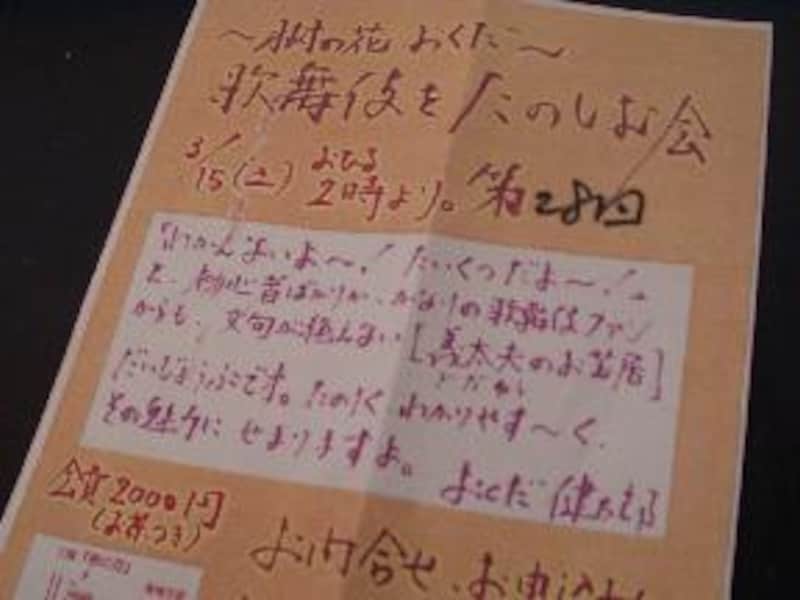 ～樹の花 おくだ～
歌舞伎をたのしむ会
3/15(土) おひる2時より。 第28回
「わかんないよ～！たいくつだよ～！」
と、初心者ばかりか、かなりの歌舞伎ファン
からも、文句が絶えない[義太夫のお芝居]
だいじょうぶです。たのしく わかりやす～く、
その魅力に せまりますよ。 おくだ 健太郎
会費2000円
(お茶つき)
お問合せ、お申込み